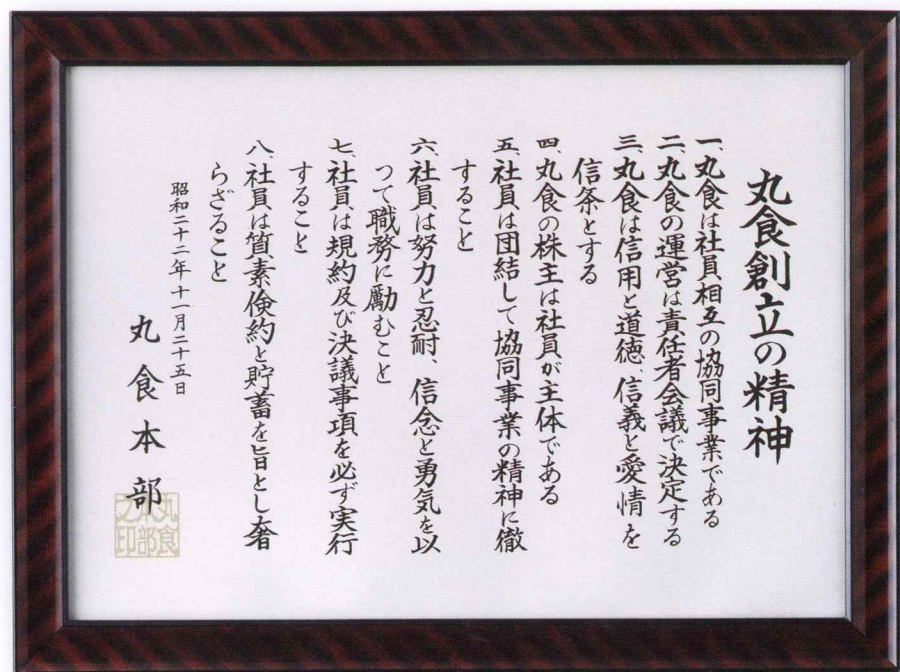 丸食創立の精神
一、丸食は社員相互の協同事業である
二、丸食の運営は責任者会議で決定する
三、丸食は信用と道徳、信義と愛情を
信条とする
四、丸食の株主は社員が主体である
五、社員は団結して協同事業の精神に徹
すること
六、社員は努力と忍耐、信念と勇気を以
つて職務に励むこと
七、社員は規約及び決議事項を必ず実行
すること
八、社員は質素倹約と貯蓄を旨とし奢
らざること
昭和二十二年十一月二十五日
丸食本部
丸食
本部
之印